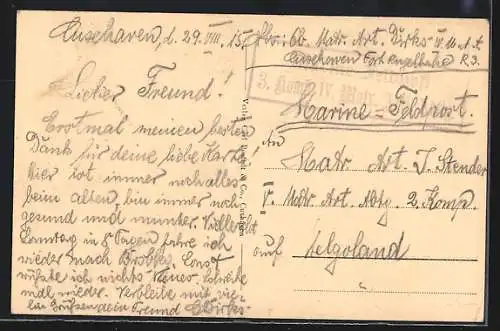 Cuxhaven, d. 29. VIII. 15.
Lieber Freund!
Erstmal meinen besten
Dank für deine liebe Karte.
Hier ist immer noch alles
beim alten, bin immer noch
gesund und munter. Vielleicht
Sonntag in 8 Tagen fahre ich
wieder nach Sonst
wüßte ich nichts Neues. Schreibe
mal wieder. Verbleibe mit vie-
len Grüßen dein Freund Dirks
Verlag Cuxhaven
Ob. Matr. Art. Dirks IV. M. A. A.
Cuxhaven Fort Kugelbake R 3.
3. Komp. IV. Matr.
Marine-Feldpost.
An
Matr. Art. J. Stender
V. Matr. Art. Abtg. 2. Komp.
auf Helgoland